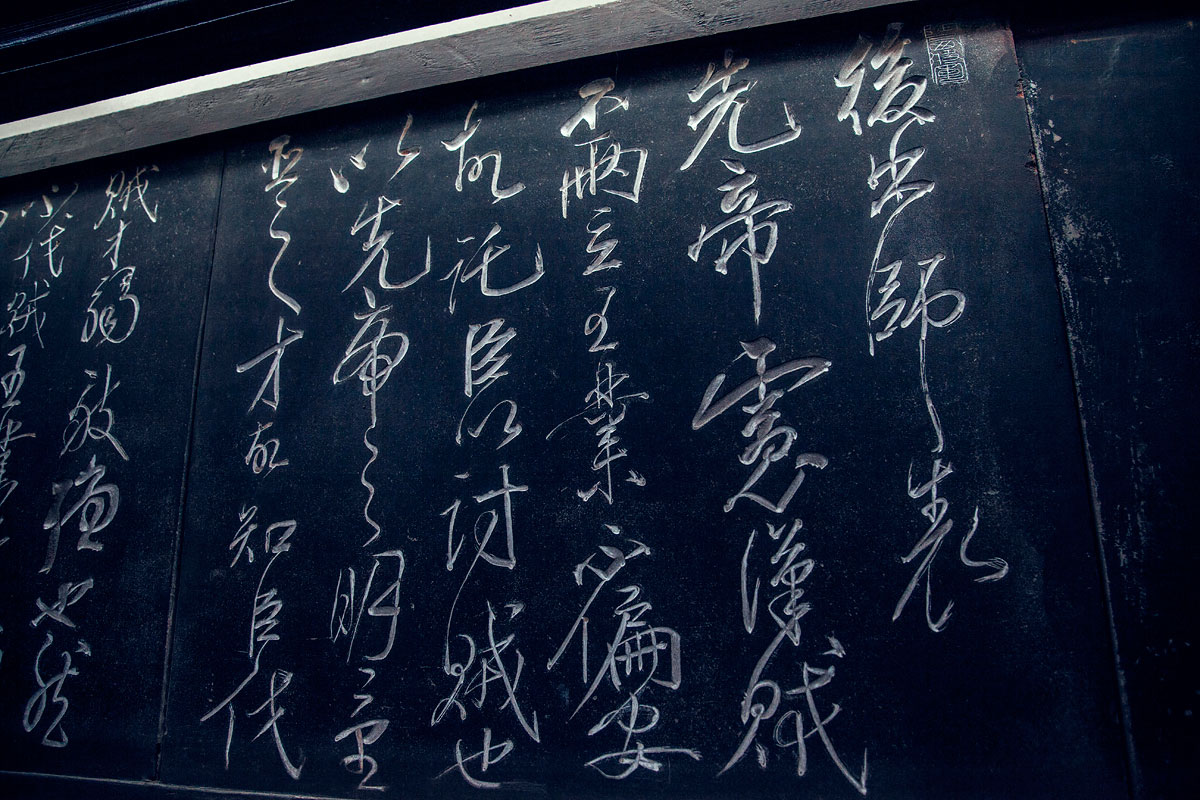 後出師表
先帝慮漢賊
不兩立王業不偏安
故託臣以討賊也
以先帝之明量
臣之才故知臣伐
賊才弱敵彊也然
不伐賊王業